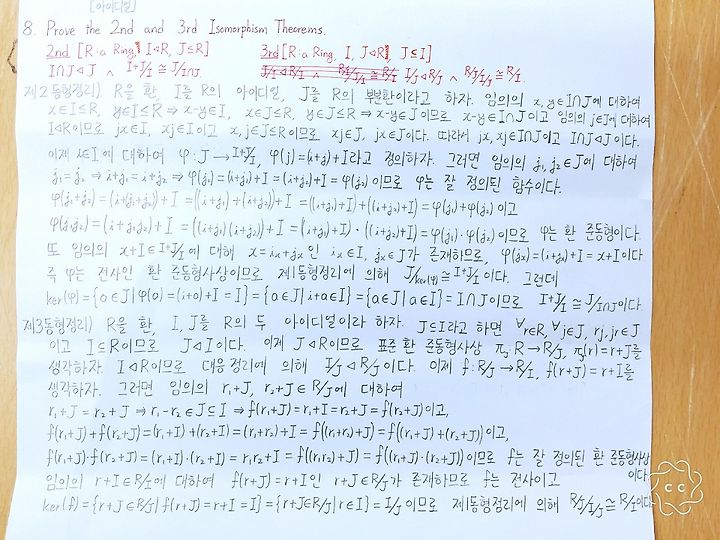 [아이디얼]
8. Prove the 2nd and 3rd Isomorphism Theorems.
2nd [R: a Ring, I⊲R, J≤R] 3rd [R: a Ring, I, J⊲R, J⊆I]
I∩J⊲J ∧ I+J/I ≅ J/I∩J. I/J⊲R/J ∧ R/J/I/J ≅ R/I.
제2동형정리) R을 환, I를 R의 아이디얼, J를 R의 부분환이라고 하자. 임의의 x, y∈I∩J에 대하여
x∈I≤R, y∈I≤R ⇒ x-y∈I, x∈J≤R, y∈J≤R ⇒ x-y∈J 이므로 x-y∈I∩J이고 임의의 j∈J에 대하여
I⊲R이므로 jx∈I, xj∈I이고 x, j∈J≤R이므로 xj∈J, jx∈J이다. 따라서 jx, xj∈I∩J이고 I∩J⊲J이다.
이제 i∈I에 대하여 φ: J → I+J/I, φ(j)=(i+j)+I라고 정의하자. 그러면 임의의 j₁, j₂∈J에 대하여
j₁=j₂ ⇒ i+j₁=i+j₂ ⇒ φ(j₁)=(i+j₁)+I=(i+j₂)+I=φ(j₂)이므로 φ는 잘 정의된 함수이다.
φ(j₁+j₂)=(i+(j₁+j₂))+I=((i+j₁)+(i+j₂))+I=((i+j₁)+I)+((i+j₂)+I)=φ(j₁)+φ(j₂)이고
φ(j₁j₂)=(i+j₁j₂)+I=((i+j₁)(i+j₂))+I=((i+j₁)+I)·((i+j₂)+I)=φ(j₁)·φ(j₂)이므로 φ는 환 준동형이다.
또 임의의 x+I∈I+J/I에 대해 x=iₓ+jₓ인 iₓ∈I, jₓ∈J가 존재하므로, φ(jₓ)=(i+jₓ)+I=x+I이다.
즉 φ는 전사인 환 준동형사상이므로 제1동형정리에 의해 J/ker(φ)≅I+J/I이다. 그런데
ker(φ)={a∈J|φ(a)=(i+a)+I=I}={a∈J|i+a∈I}={a∈J|a∈I}=I∩J이므로 I+J/I≅J/I∩J이다.
제3동형정리) R을 환, I, J를 R의 두 아이디얼이라 하자. J⊆I라고 하면 ∀r∈R, ∀j∈J, rj, jr∈J
이고 I≤R이므로 J⊲I이다. 이제 J⊲R이므로 표준 환 준동형사상 πJ: R→R/J, πJ(r)=r+J를
생각하자. I⊲R이므로 대응정리에 의해 I/J⊲R/J이다. 이제 f: R/J→R/I, f(r+J)=r+I를
생각하자. 그러면 임의의 r₁+J, r₂+J∈R/J에 대하여
r₁+J=r₂+J ⇒ r₁-r₂∈J⊆I ⇒ f(r₁+J)=r₁+I=r₂+I=f(r₂+J)이고,
f(r₁+J)+f(r₂+J)=(r₁+I)+(r₂+I)=(r₁+r₂)+I=f((r₁+r₂)+J)=f((r₁+J)+(r₂+J))이고,
f(r₁+J)·f(r₂+J)=(r₁+I)·(r₂+I)=r₁r₂+I=f((r₁r₂)+J)=f((r₁+J)·(r₂+J))이므로 f는 잘 정의된 환 준동형사상
이다.
임의의 r+I∈R/I에 대하여 f(r+J)=r+I인 r+J∈R/J가 존재하므로 f는 전사이고
ker(f)={r+J∈R/J|f(r+J)=r+I=I}={r+J∈R/J|r∈I}=I/J이므로 제1동형정리에 의해 R/J/I/J≅R/I이다.
cc